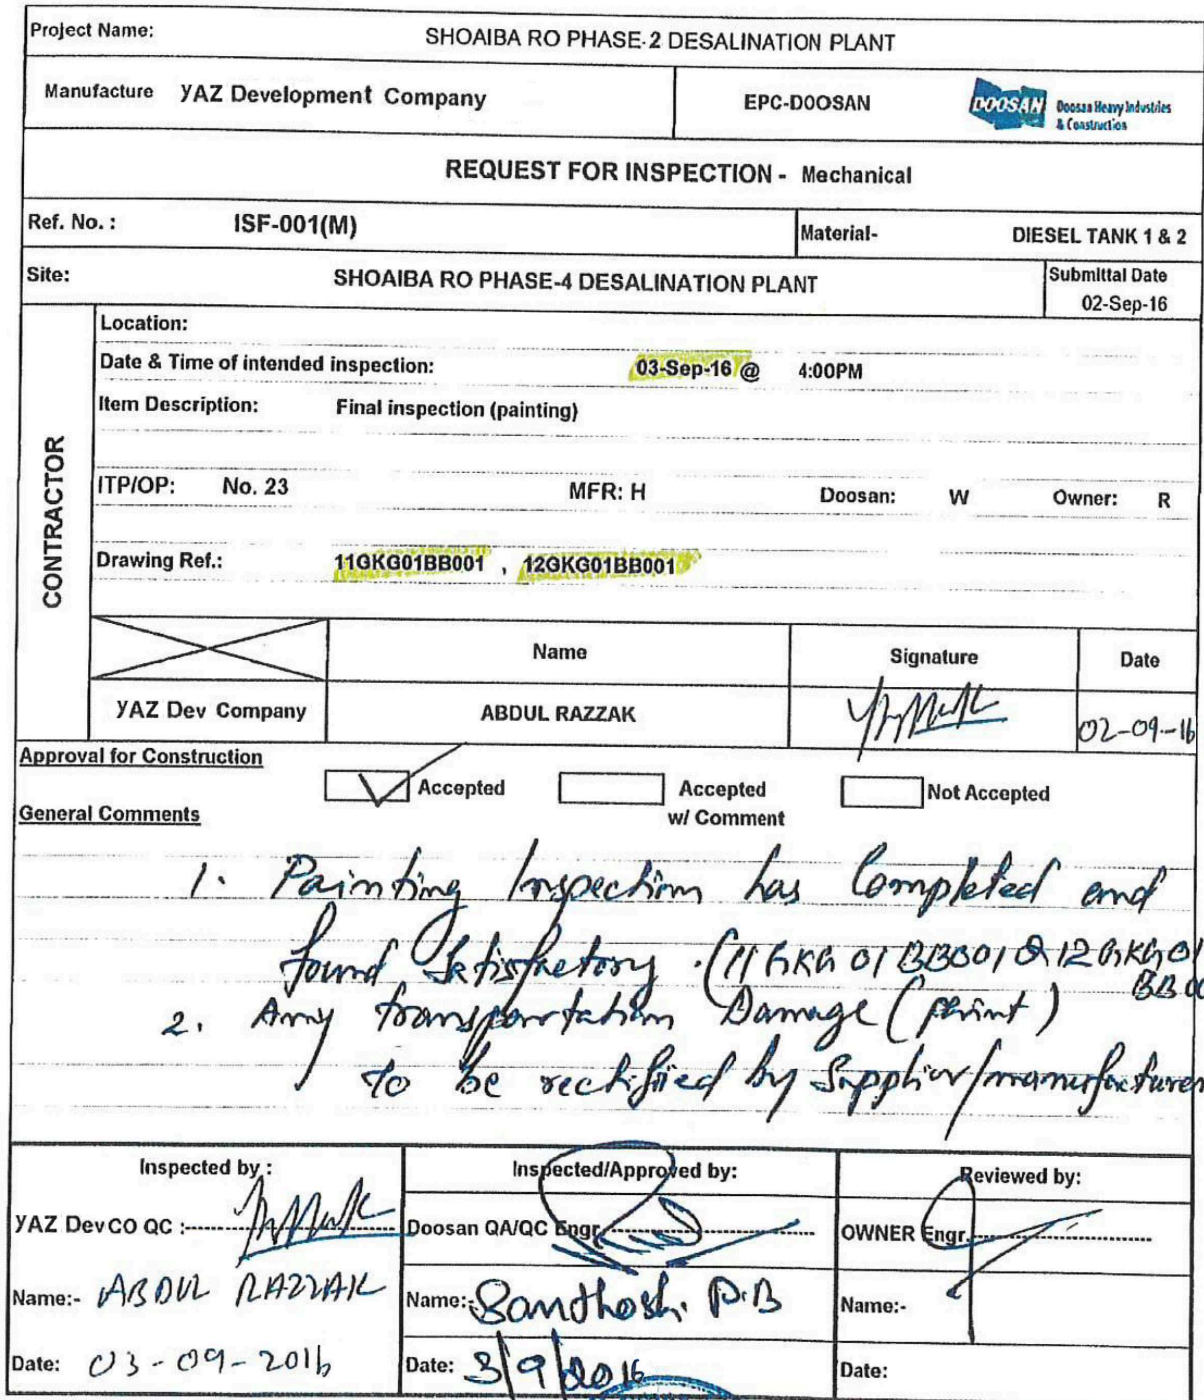 Project Name: SHOAIBA RO PHASE-2 DESALINATION PLANT
Manufacture YAZ Development Company EPC-DOOSAN DOOSAN Doosan Heavy Industries
& Construction
REQUEST FOR INSPECTION - Mechanical
Ref. No. : ISF-001(M) Material- DIESEL TANK 1 & 2
Site: SHOAIBA RO PHASE-4 DESALINATION PLANT Submittal Date
02-Sep-16
CONTRACTOR
Location:
Date & Time of intended inspection: 03-Sep-16 @ 4:00PM
Item Description: Final inspection (painting)
ITP/OP: No. 23 MFR: H Doosan: W Owner: R
Drawing Ref.: 11GKG01BB001 , 12GKG01BB001
Name Signature Date
YAZ Dev Company ABDUL RAZZAK 02-09-16
Approval for Construction
Accepted Accepted Not Accepted
w/ Comment
General Comments
1. Painting Inspection has Completed and
found Satisfactory . (11GKG01BB001 & 12GKG01
BB00
2. Any transportation Damage (paint)
to be rectified by Supplier/manufacturer
Inspected by : Inspected/Approved by: Reviewed by:
YAZ Dev CO QC : Doosan QA/QC Engr. OWNER Engr.
Name:- ABDUL RAZZAK Name:- Santhosh. P.B Name:-
Date: 03-09-2016 Date: 3/9/2016 Date: